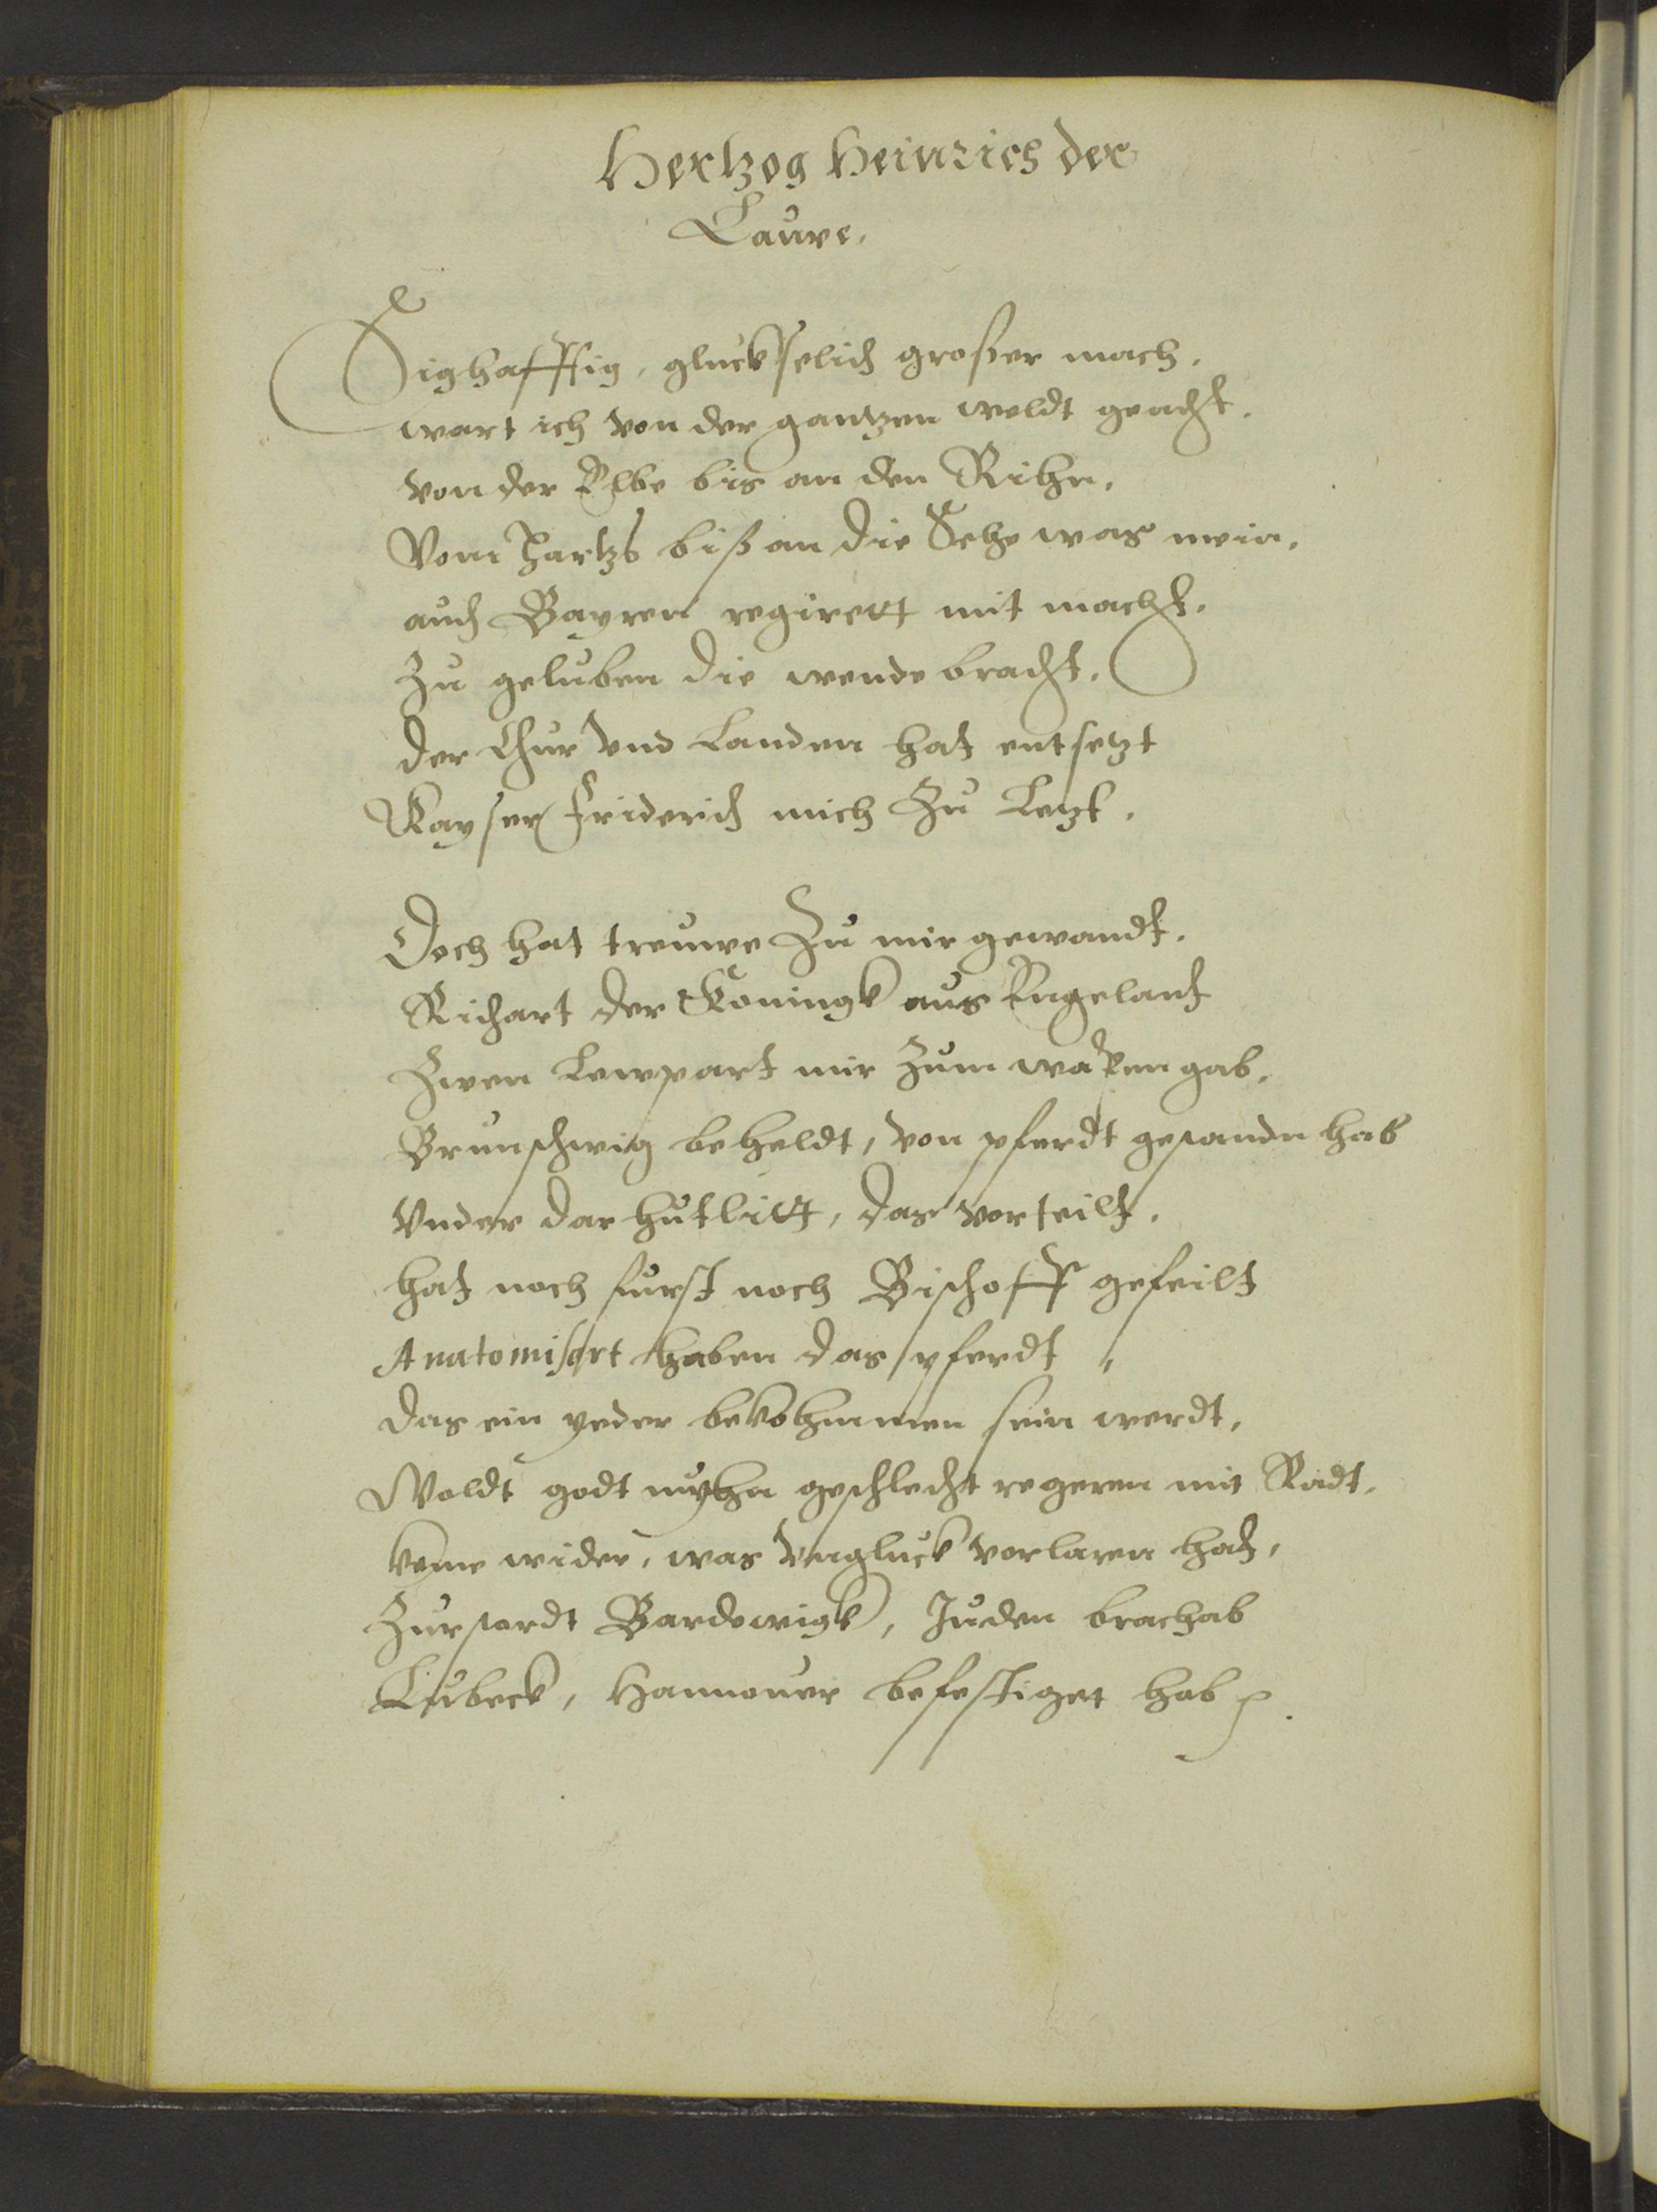 Hertzog Heinrich der
Lauwe.
Sighafftig, gluckselich großer mach.
wart ich von der gantzen weldt geacht.
von der Elbe bis an den Rihn.
Vom Hartz biß an die Sehe was mein.
auch Bayren regirett mit macht.
Zu geluben die wende bracht.
der Chur vnd Landen hat entsetzt
Kayser Friderich mich Zu Letzt.
Doch hat treuwe Zu mir gewandt.
Richart der Koningk aus Engelant
Zwen Lewpart mir Zum wapen gab.
Brunschwig beheldt, von pferdt gesandn hab
Vnder dar hutlitt, das vorteilt.
hat noch furst noch Bischoff gefeilt
Anatomisert haben das pferdt,
das ein yeder bekohmmen sein werdt.
Woldt godt myhn geschlecht regeren mit Radt.
keme wider, was Vngluck vorlaren hat,
Zurstordt Bardewigk, Juden brach ab
Lubeck, Hannouer befestiget hab.